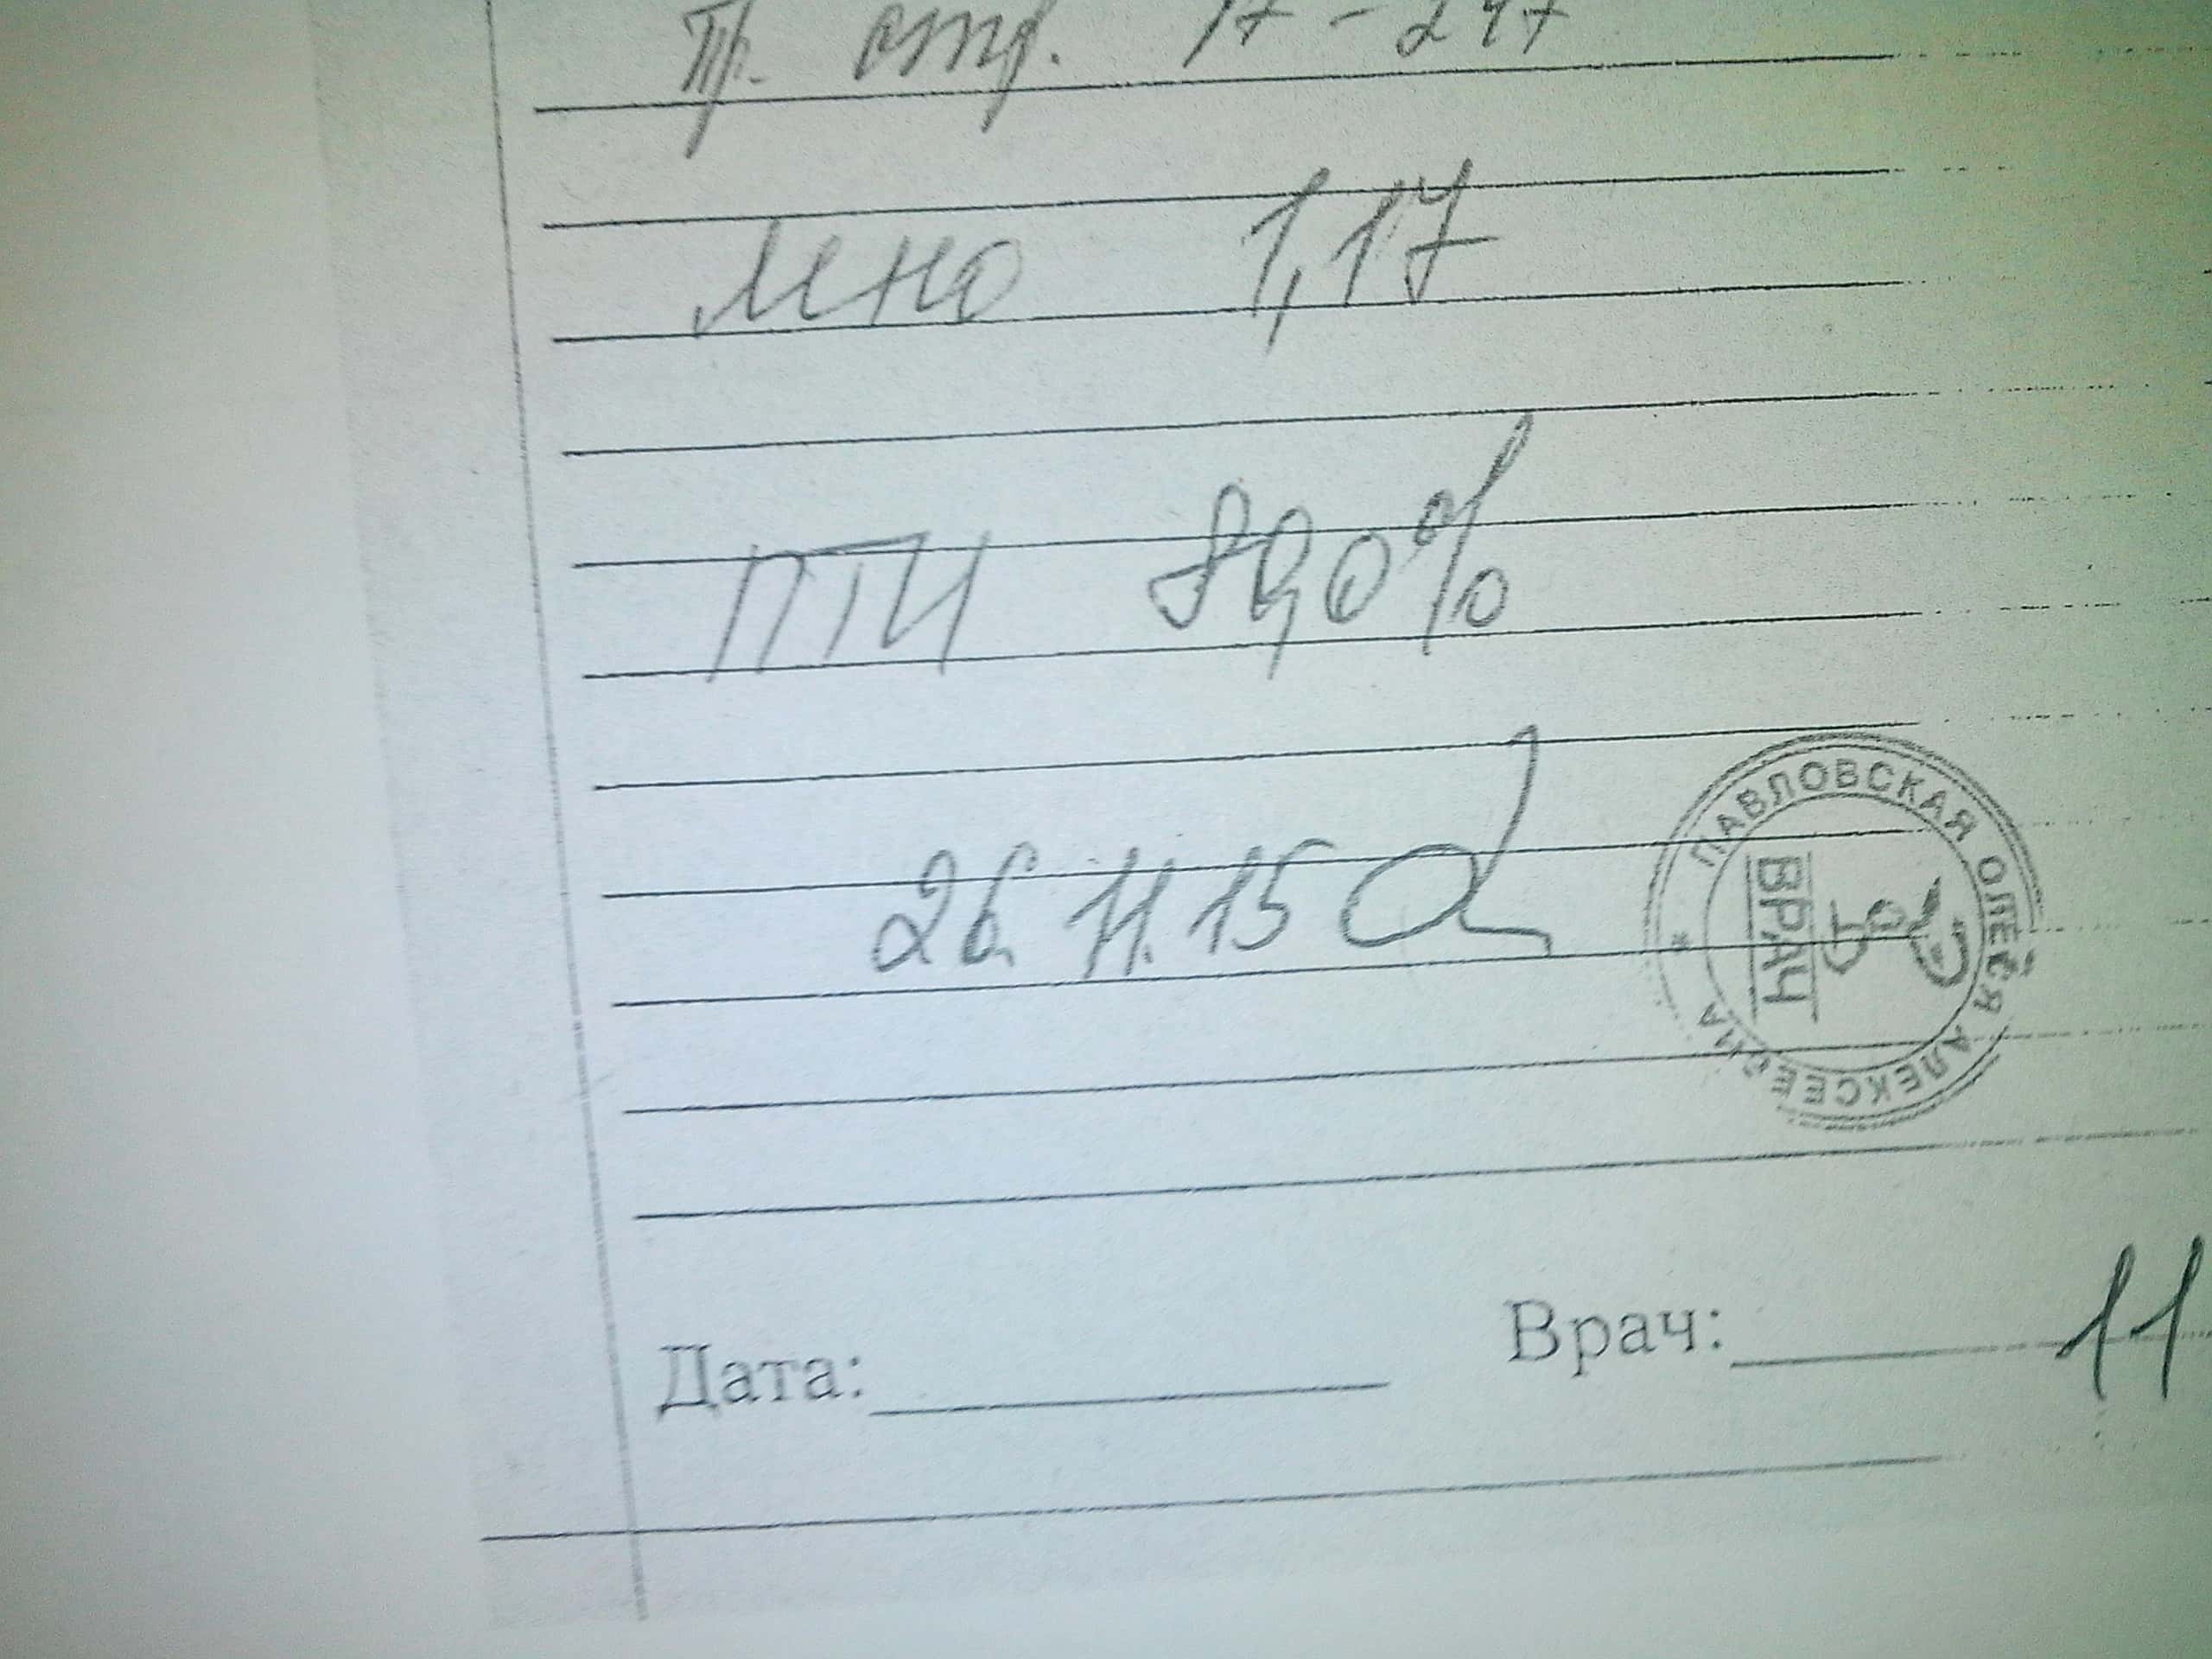 Тр. отр. 17 - 247
МНО 1,17
ПТИ 89,0%
26.11.15
ПАВЛОВСКАЯ ОЛЕСЯ АЛЕКСЕЕВНА
ВРАЧ
Дата: Врач: 11